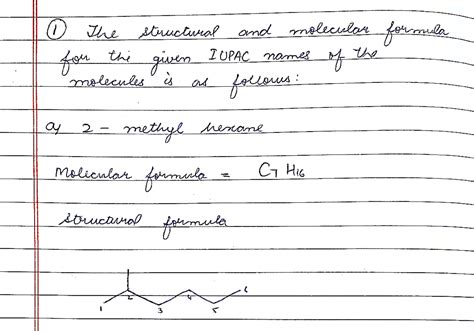 ① The structural and molecular formula
for the given IUPAC names of the
molecules is as follows:
a) 2 - methyl hexane
Molecular formula = C7 H16
Structural formula
1 2 3 4 5 6